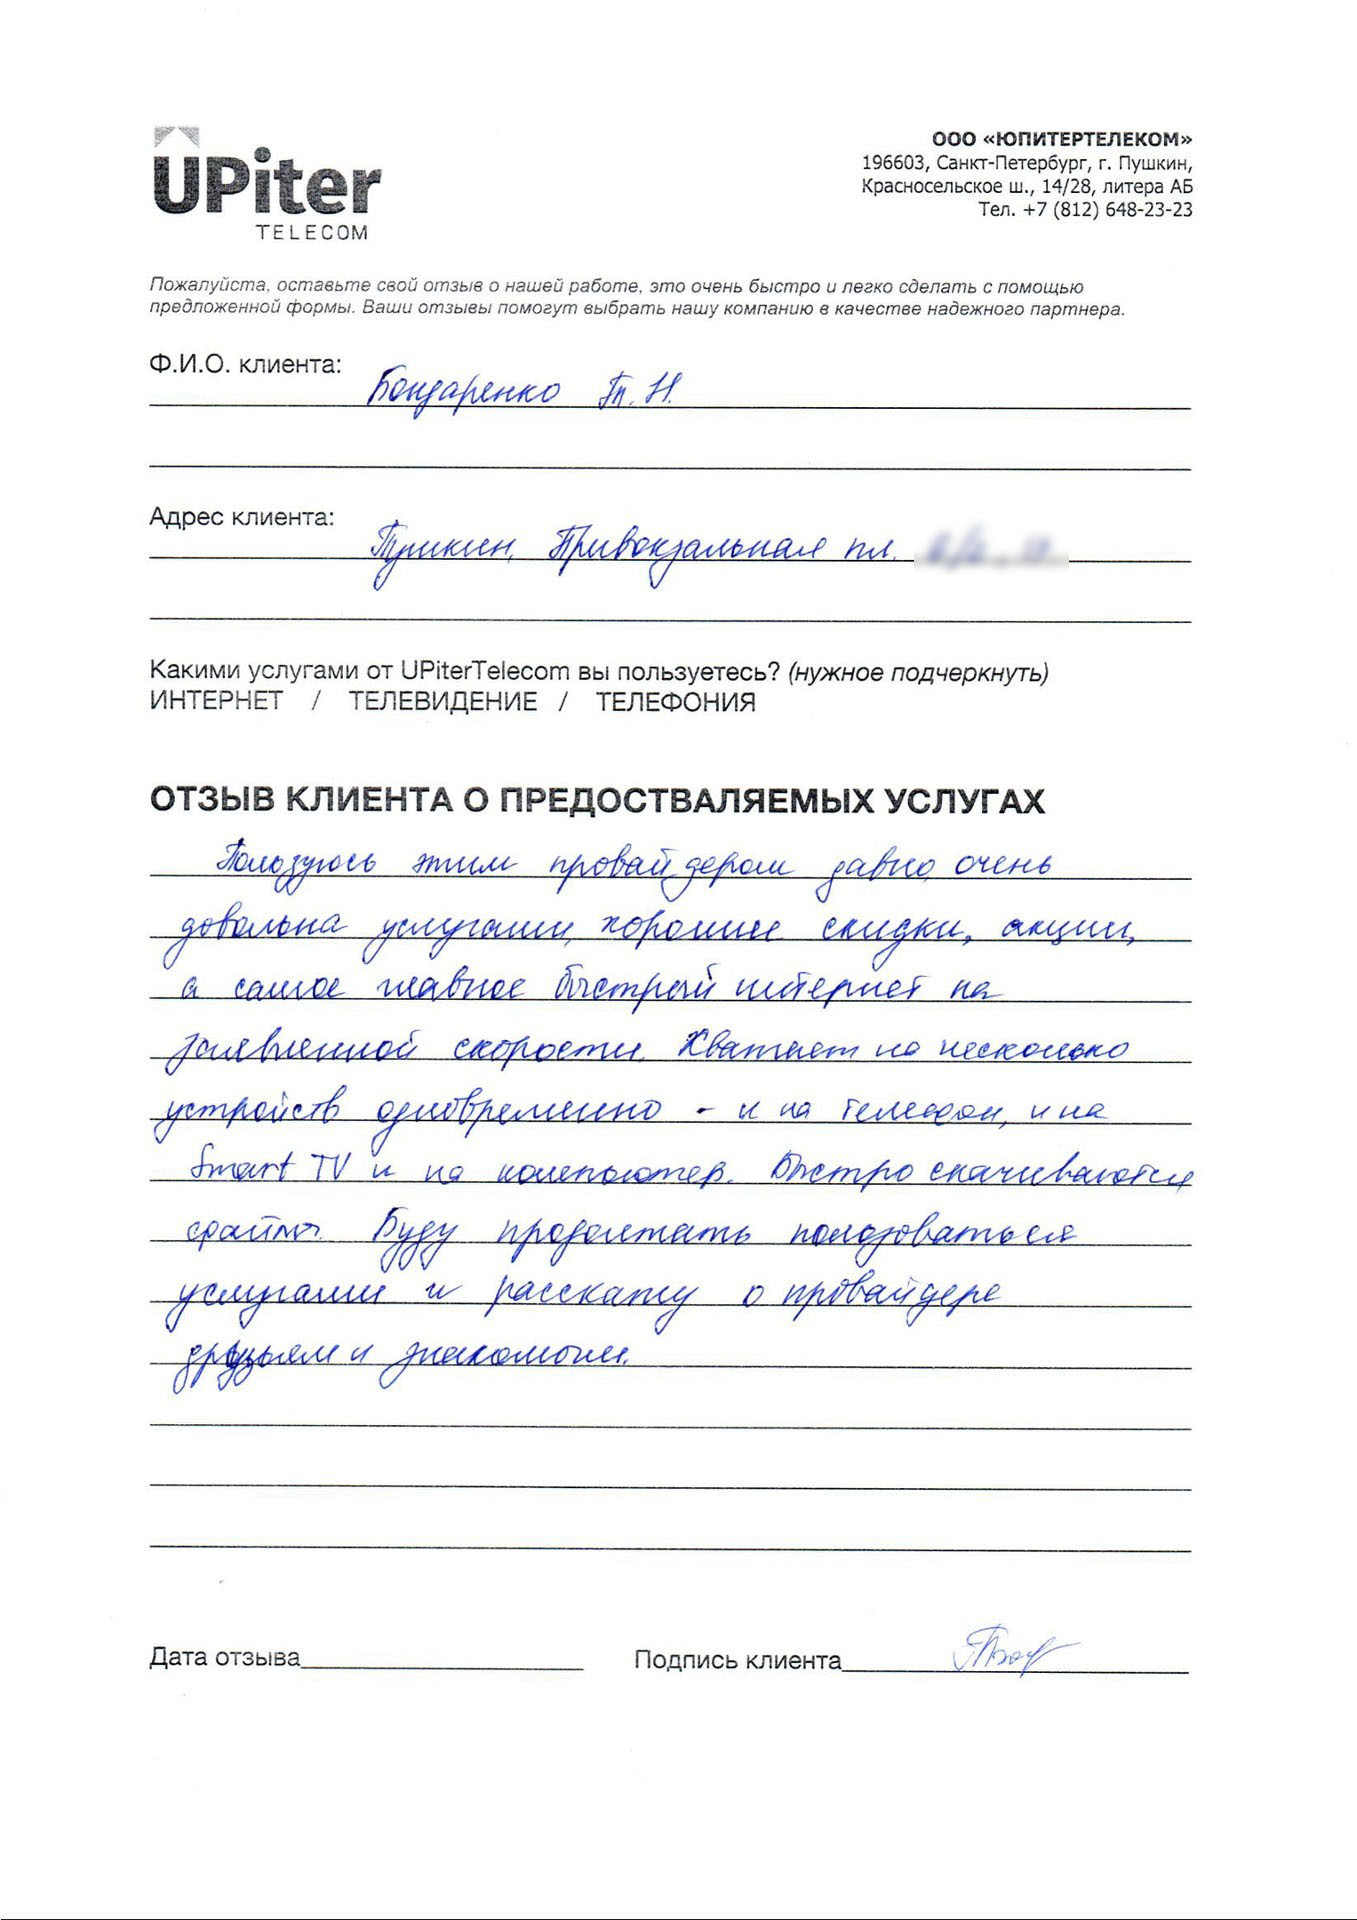 UPiter
TELECOM
ООО «ЮПИТЕРТЕЛЕКОМ»
196603, Санкт-Петербург, г. Пушкин,
Красносельское ш., 14/28, литера АБ
Тел. +7 (812) 648-23-23
Пожалуйста, оставьте свой отзыв о нашей работе, это очень быстро и легко сделать с помощью
предложенной формы. Ваши отзывы помогут выбрать нашу компанию в качестве надежного партнера.
Ф.И.О. клиента:
Бондаренко Н.
Адрес клиента:
Пушкин, Привокзальная пл.
Какими услугами от UPiterTelecom вы пользуетесь? (нужное подчеркнуть)
ИНТЕРНЕТ / ТЕЛЕВИДЕНИЕ / ТЕЛЕФОНИЯ
ОТЗЫВ КЛИЕНТА О ПРЕДОСТВАЛЯЕМЫХ УСЛУГАХ
Пользуюсь этим провайдером давно, очень
довольна услугами, хорошие скидки, акции,
а самое главное быстрый интернет на
заявленной скорости. Хватает на несколько
устройств одновременно - и на телефон, и на
Smart TV и на компьютер. Быстро скачиваются
файлы. Буду продолжать пользоваться
услугами и расскажу о провайдере
друзьям и знакомым.
Дата отзыва
Подпись клиента